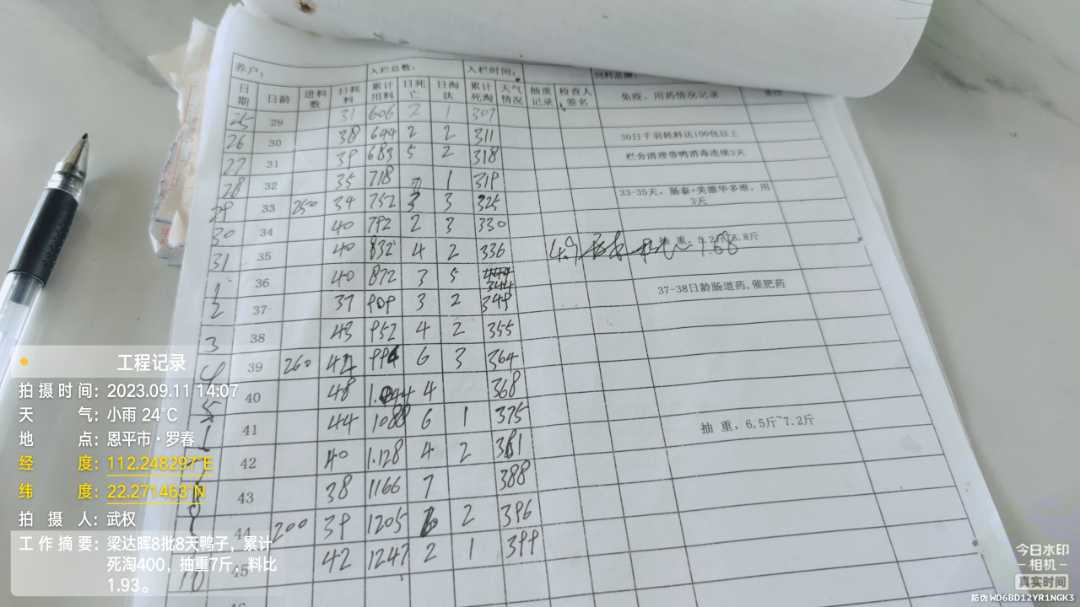 养户: 入栏总数: 入栏时间:
日期 日龄 进料数 日耗料 累计用料 日死亡 日淘汰 累计死淘 天气情况 抽重记录 检查人签名 免疫、用药情况记录
25 29 31 606 2 1 307
26 30 38 644 2 2 311 30日子弱耗料达100包以上
27 31 39 683 5 2 318 栏舍清理带鸭消毒连续3天
28 32 35 718 1 319
29 33 250 34 752 3 3 325 33-35天,肠泰+美德华多维,用3天
30 34 40 792 2 3 330
31 35 40 832 4 2 336 4.9 1.68 抽重:
1 36 40 872 3 5 344
2 37 37 909 3 2 349 37-38日龄肠道药,催肥药
3 38 43 952 4 2 355
4 39 260 42 994 6 3 364
5 40 48 4 368
41 44 1088 6 1 375
42 40 1.128 4 2 381 抽重:6.5斤~7.2斤
43 38 1166 7 388
44 200 39 1205 6 2 396
10 45 42 1247 2 1 399
工程记录
拍摄时间:2023.09.11 14:07
天 气:小雨 24℃
地 点:恩平市·罗春
经 度:112.248297°E
纬 度:22.271463°N
拍 摄 人:武权
工作摘要:梁达晖8批8天鸭子,累计
死淘400,抽重7斤,料比
1.93。
今日水印
相机
真实时间
防伪 WD6BD12YR1NGK3